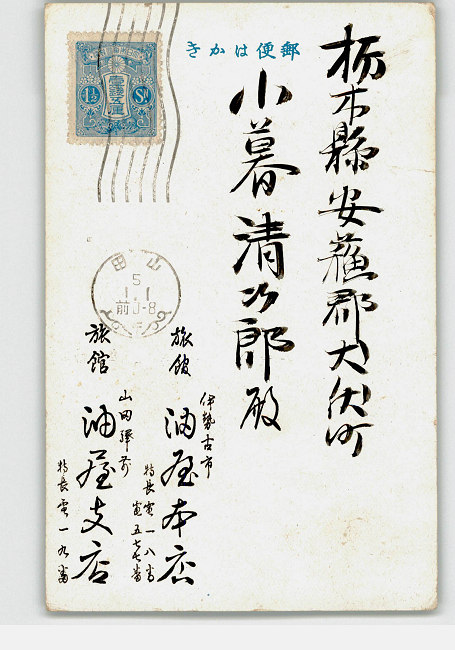 郵便はかき
栃木縣安蘓郡犬伏町
小暮清次郎殿
伊勢古市
旅館 油屋本店
特長電一八番
電五七七番
山田驛前
旅館 油屋支店
特長電一九番
壹錢五厘
1½ Sn
山田
5
1.1
前0-8